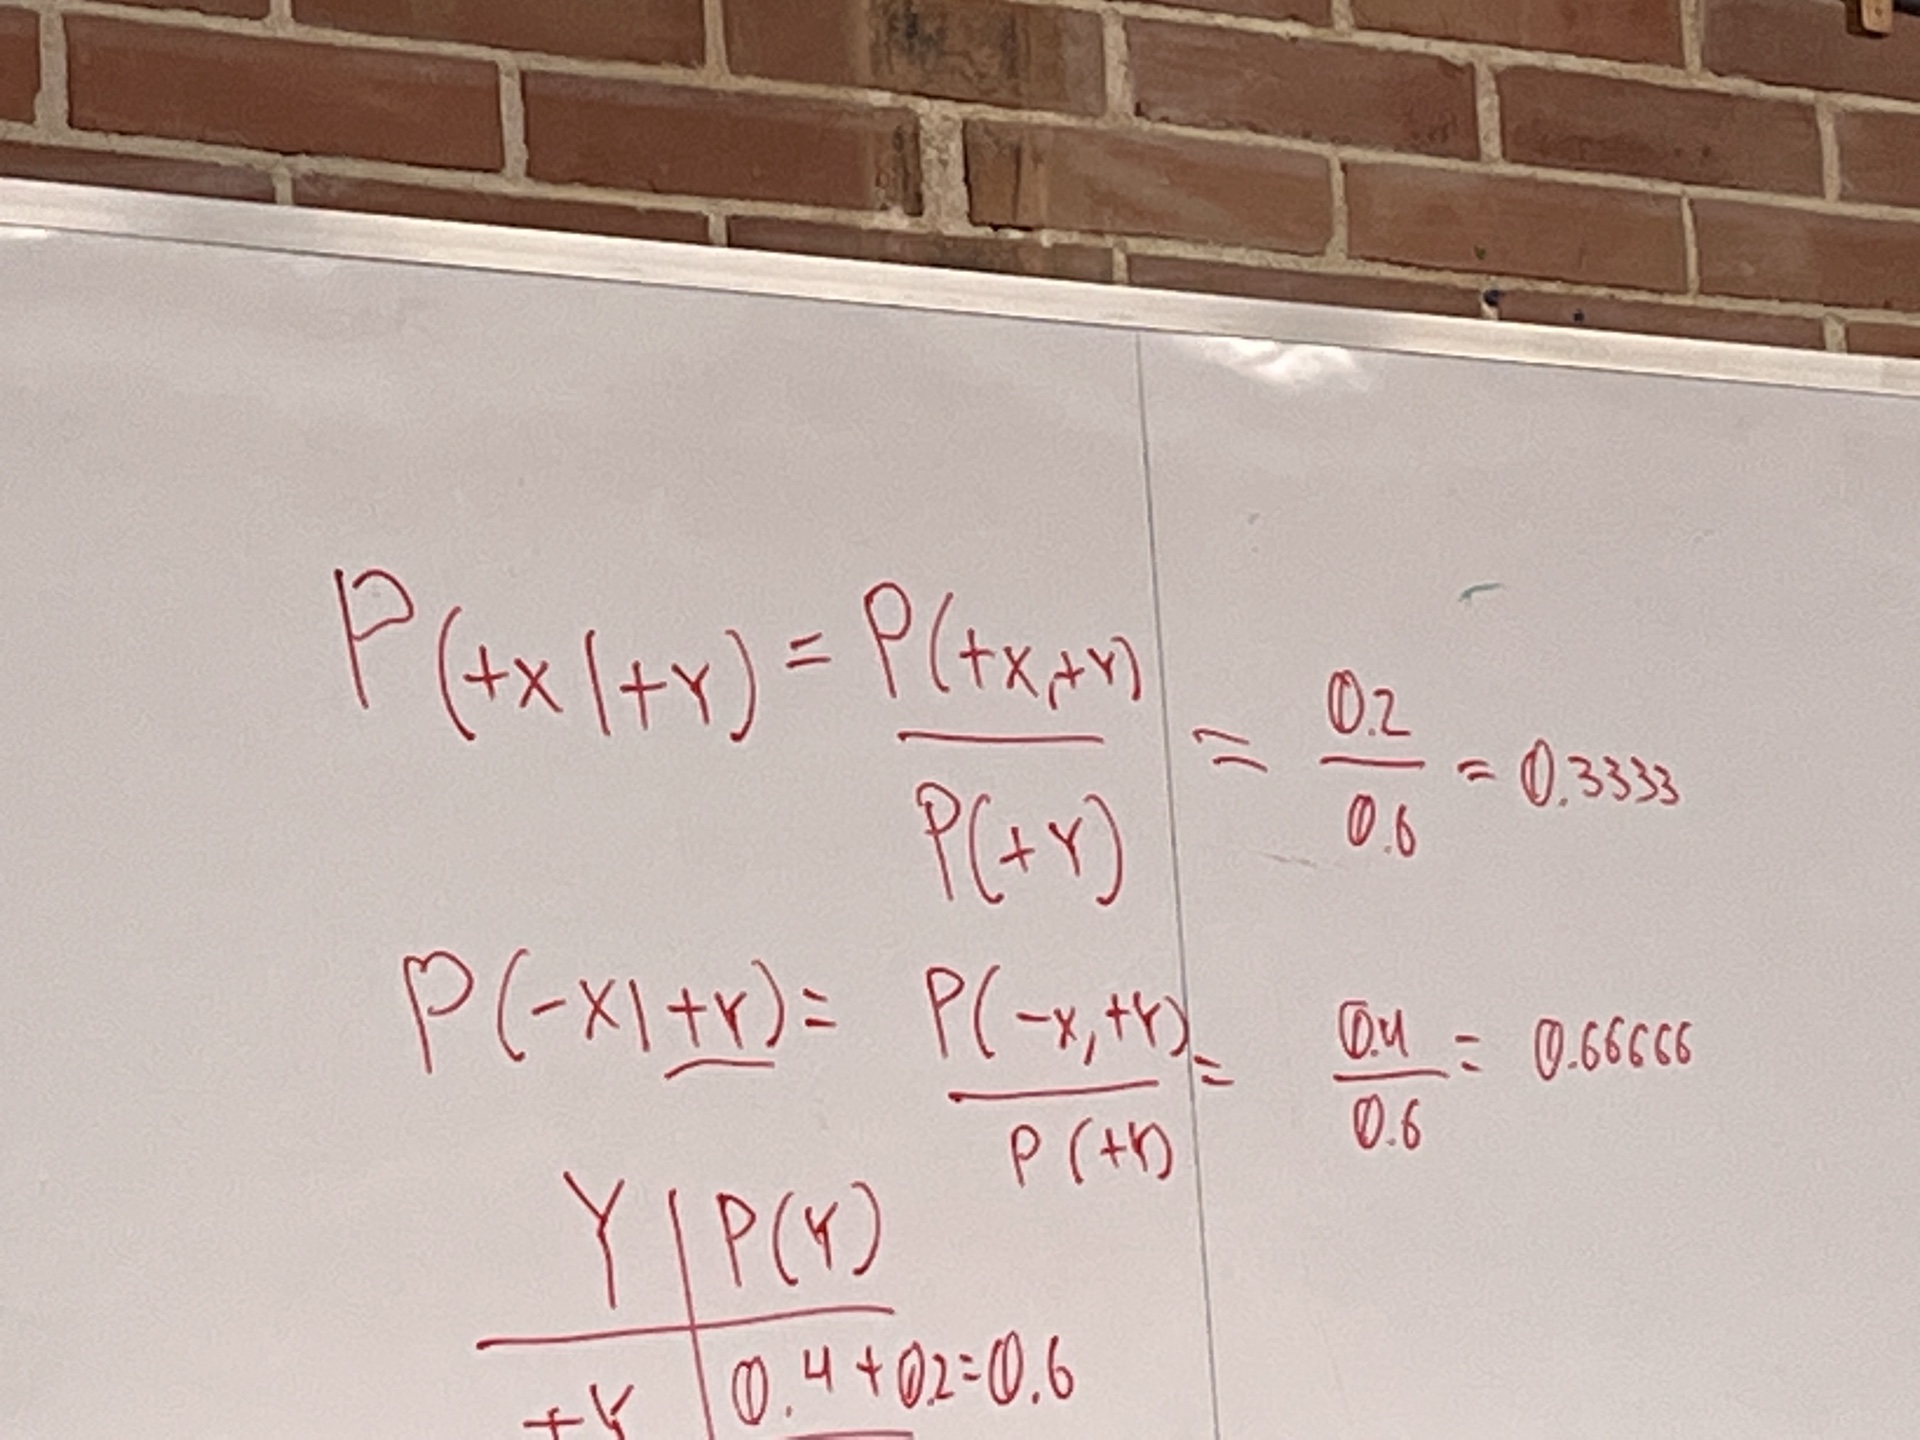 P(+x|+Y) = P(+x,+Y) / P(+Y) = 0.2 / 0.6 = 0.3333
P(-x|+Y) = P(-x,+Y) / P(+Y) = 0.4 / 0.6 = 0.66666
Y | P(Y)
+Y | 0.4 + 0.2 = 0.6